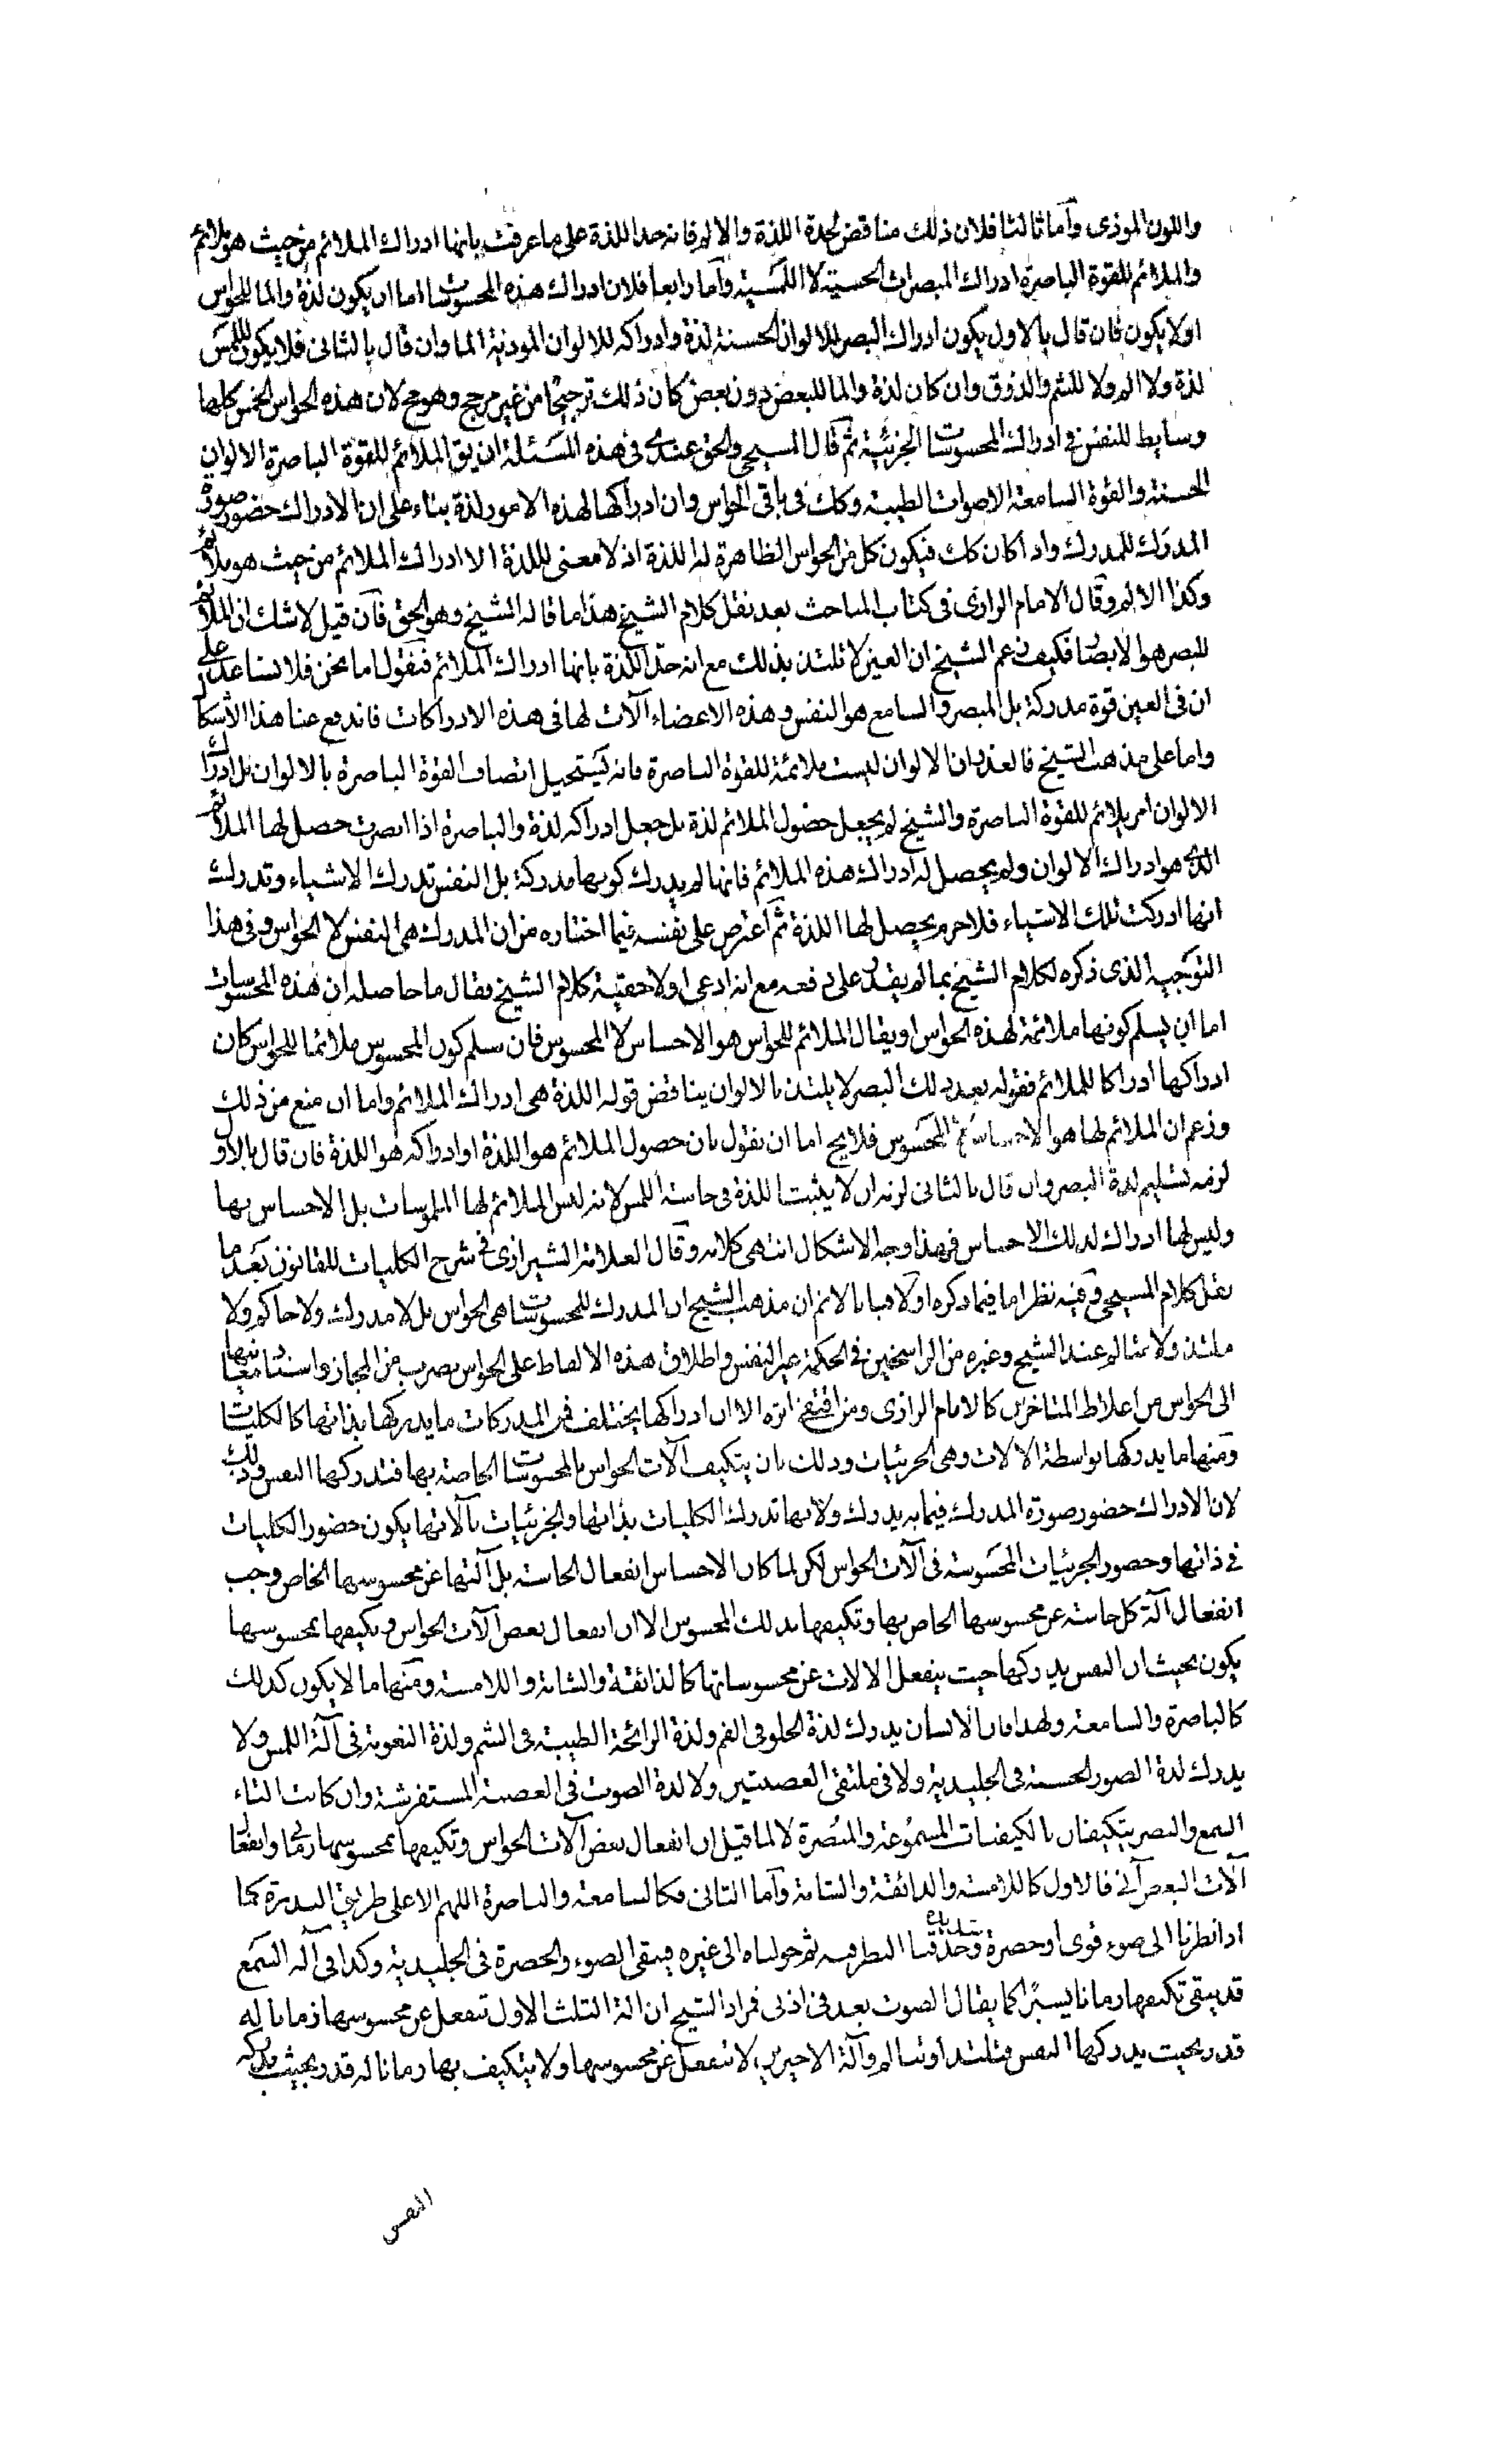 واللون الموذى وأما ثالثا فلان ذلك مناقض لحده اللذة والالم فانه حد اللذة على ما عرفت بانها ادراك الملائم من حيث هو ملائم
والملائم للقوة الباصرة ادراك المبصرات الحسية لا اللمسية وأما رابعا فلان ادراك هذه المحسوسات اما ان يكون لذة والما للحواس
اولا يكون فان قال بالاول يكون ادراك البصر للالوان الحسنة لذة وادراكه للالوان الموذية الما وان قال بالثانى فلا يكون للمس
لذة ولا الم ولا للشم والذوق وان كان لذة والما للبعض دون بعض كان ذلك ترجيحا من غير مرجح وهو مح لان هذه الحواس الخمس كلها
وسايط للنفس فى ادراك المحسوسات الجزئية ثم قال المسيحى والحق عندى فى هذه المسئلة ان يق الملائم للقوة الباصرة الالوان
الحسنة والقوة السامعة الاصوات الطيبة وكك فى باقى الحواس وان ادراكها لهذه الامور لذة بناء على ان الادراك حضور صورة
المدرك للمدرك واذا كان كك فيكون كل من الحواس الظاهرة له اللذة اذ لا معنى لللذة الا ادراك الملائم من حيث هو ملائم
وكذا الالم وقال الامام الرازى فى كتاب المباحث بعد نقل كلام الشيخ هذا ما قاله الشيخ وهو الحق فان قيل لا شك ان الملائم
للبصر هو الابصار فكيف زعم الشيخ ان العين لا تلتذ بذلك مع انه حد اللذة بانها ادراك الملائم فنقول اما نحن فلا نساعد على
ان فى العين قوة مدركة بل المبصر والسامع هو النفس وهذه الاعضاء آلات لها فى هذه الادراكات فاندفع عنا هذا الاشكال
واما على مذهب الشيخ فالعذر ان الالوان ليست ملائمة للقوة الباصرة فانه يستحيل اتصاف القوة الباصرة بالالوان بل ادراك
الالوان امر يلائم للقوة الباصرة والشيخ لم يجعل حصول الملائم لذة بل جعل ادراكه لذة والباصرة اذا ابصرت حصل لها الملائم
الذى هو ادراك الالوان ولم يحصل له ادراك هذه الملائم فانها لم يدرك كونها مدركة بل النفس تدرك الاشياء وتدرك
انها ادركت تلك الاشياء فلاجرم يحصل لها اللذة ثم اعترض على نفسه فيما اختاره من ان المدرك هى النفس لا الحواس وفى هذا
التوجيه الذى ذكره لكلام الشيخ بما لم يقدر على دفعه مع انه ادعى اولا حقية كلام الشيخ فقال ما حاصله ان هذه المحسوسات
اما ان يسلم كونها ملائمة لهذه الحواس او يقال الملائم للحواس هو الاحساس لا المحسوس فان سلم كون المحسوس ملائما للحواس كان
ادراكها ادراكا للملائم فقوله بعد ذلك البصر لا يلتذ بالالوان يناقض قوله اللذة هى ادراك الملائم واما ان منع من ذلك
وزعم ان الملائم لها هو الاحساس لا المحسوس فلا يخ اما ان نقول بان حصول الملائم هو اللذة او ادراكه هو اللذة فان قال بالاول
لزمه تسليم لذة البصر وان قال بالثانى لزمه ان لا يثبت اللذة فى حاسة اللمس لانه ليس الملائم لها الملموسات بل الاحساس بها
وليس لها ادراك لذلك الاحساس فهذا وجه الاشكال انتهى كلامه وقال العلامة الشيرازى فى شرح الكليات للقانون بعد ما
نقل كلام المسيحى وفيه نظر اما فيما ذكره اولا فبانا لا نم ان مذهب الشيخ ان المدرك للمحسوسات هى الحواس بل لا مدرك ولا حاكم ولا
ملتذ ولا متالم عند الشيخ وغيره من الراسخين فى الحكمة غير النفس واطلاق هذه الالفاظ على الحواس بضرب من المجاز واسناد معانيها
الى الحواس من اغلاط المتاخرين كالامام الرازى ومن اقتفى اثره الا ان ادراكها يختلف فمن المدركات ما يدركها بذاتها كالكليات
ومنها ما يدركها بواسطة الالات وهى الجزئيات وذلك بان يتكيف آلات الحواس بالمحسوسات الخاصة بها فتدركها النفس وذلك
لان الادراك حضور صورة المدرك فيما به يدرك ولانها تدرك الكليات بذاتها والجزئيات بآلاتها يكون حضور الكليات
فى ذاتها وحضور الجزئيات المحسوسة فى آلات الحواس لكن لما كان الاحساس انفعال الحاسة بل آلتها عن محسوسها الخاص وجب
انفعال آلة كل حاسة عن محسوسها الخاص بها وتكيفها بذلك المحسوس الا ان انفعال بعض آلات الحواس وتكيفها بمحسوسها
يكون بحيث ان النفس يدركها حيث ينفعل الالات عن محسوساتها كالذائقة والشامة واللامسة ومنها ما لا يكون كذلك
كالباصرة والسامعة ولهذا فان الانسان يدرك لذة الحلو فى الفم ولذة الرائحة الطيبة فى الشم ولذة النعومة فى آلة اللمس ولا
يدرك لذة الصور الحسنة فى الجليدية ولا فى ملتقى العصبتين ولا لذة الصوت فى العصبة المستفرشة وان كانت التاء
السمع والبصر يتكيفان بالكيفيات المسموعة والمبصرة لا لما قيل ان انفعال بعض آلات الحواس وتكيفها بمحسوسها زمانى وانفعال
آلات البعض آنى فالاول كاللامسة والذائقة والشامة وأما الثانى فكالسامعة والباصرة اللهم الا على طريق الندرة كما
اذا نظرنا الى ضوء قوى او خضرة وحدقنا النظر فيه ثم حولناه الى غيره فيبقى الضوء والخضرة فى الجليدية وكذا فى آلة السمع
قد يبقى تكيفها زمانا يسيرا كما يقال الصوت بعد فى اذنى فمراد الشيخ ان آلة الثلث الاول تنفعل عن محسوسها زمانا له
قدر بحيث يدركها النفس فتلتذ او تتالم وآلة الاخيرين لا تنفعل عن محسوسها ولا يتكيف بها زمانا له قدر بحيث يدركه
النفس